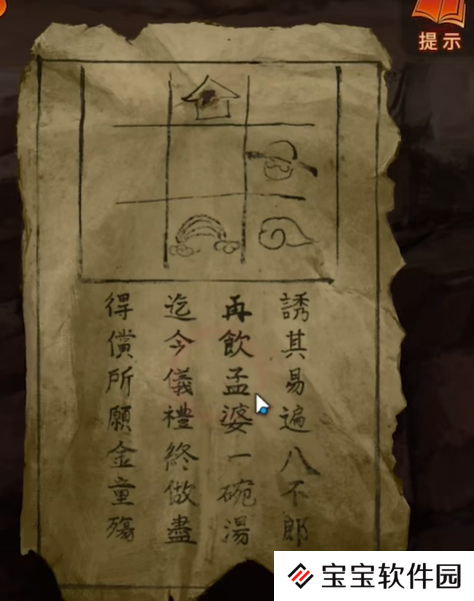 提示
誘其易遍八不郎
再飲孟婆一碗湯
迄今儀禮終做盡
得償所願金童殤
宝宝软件园